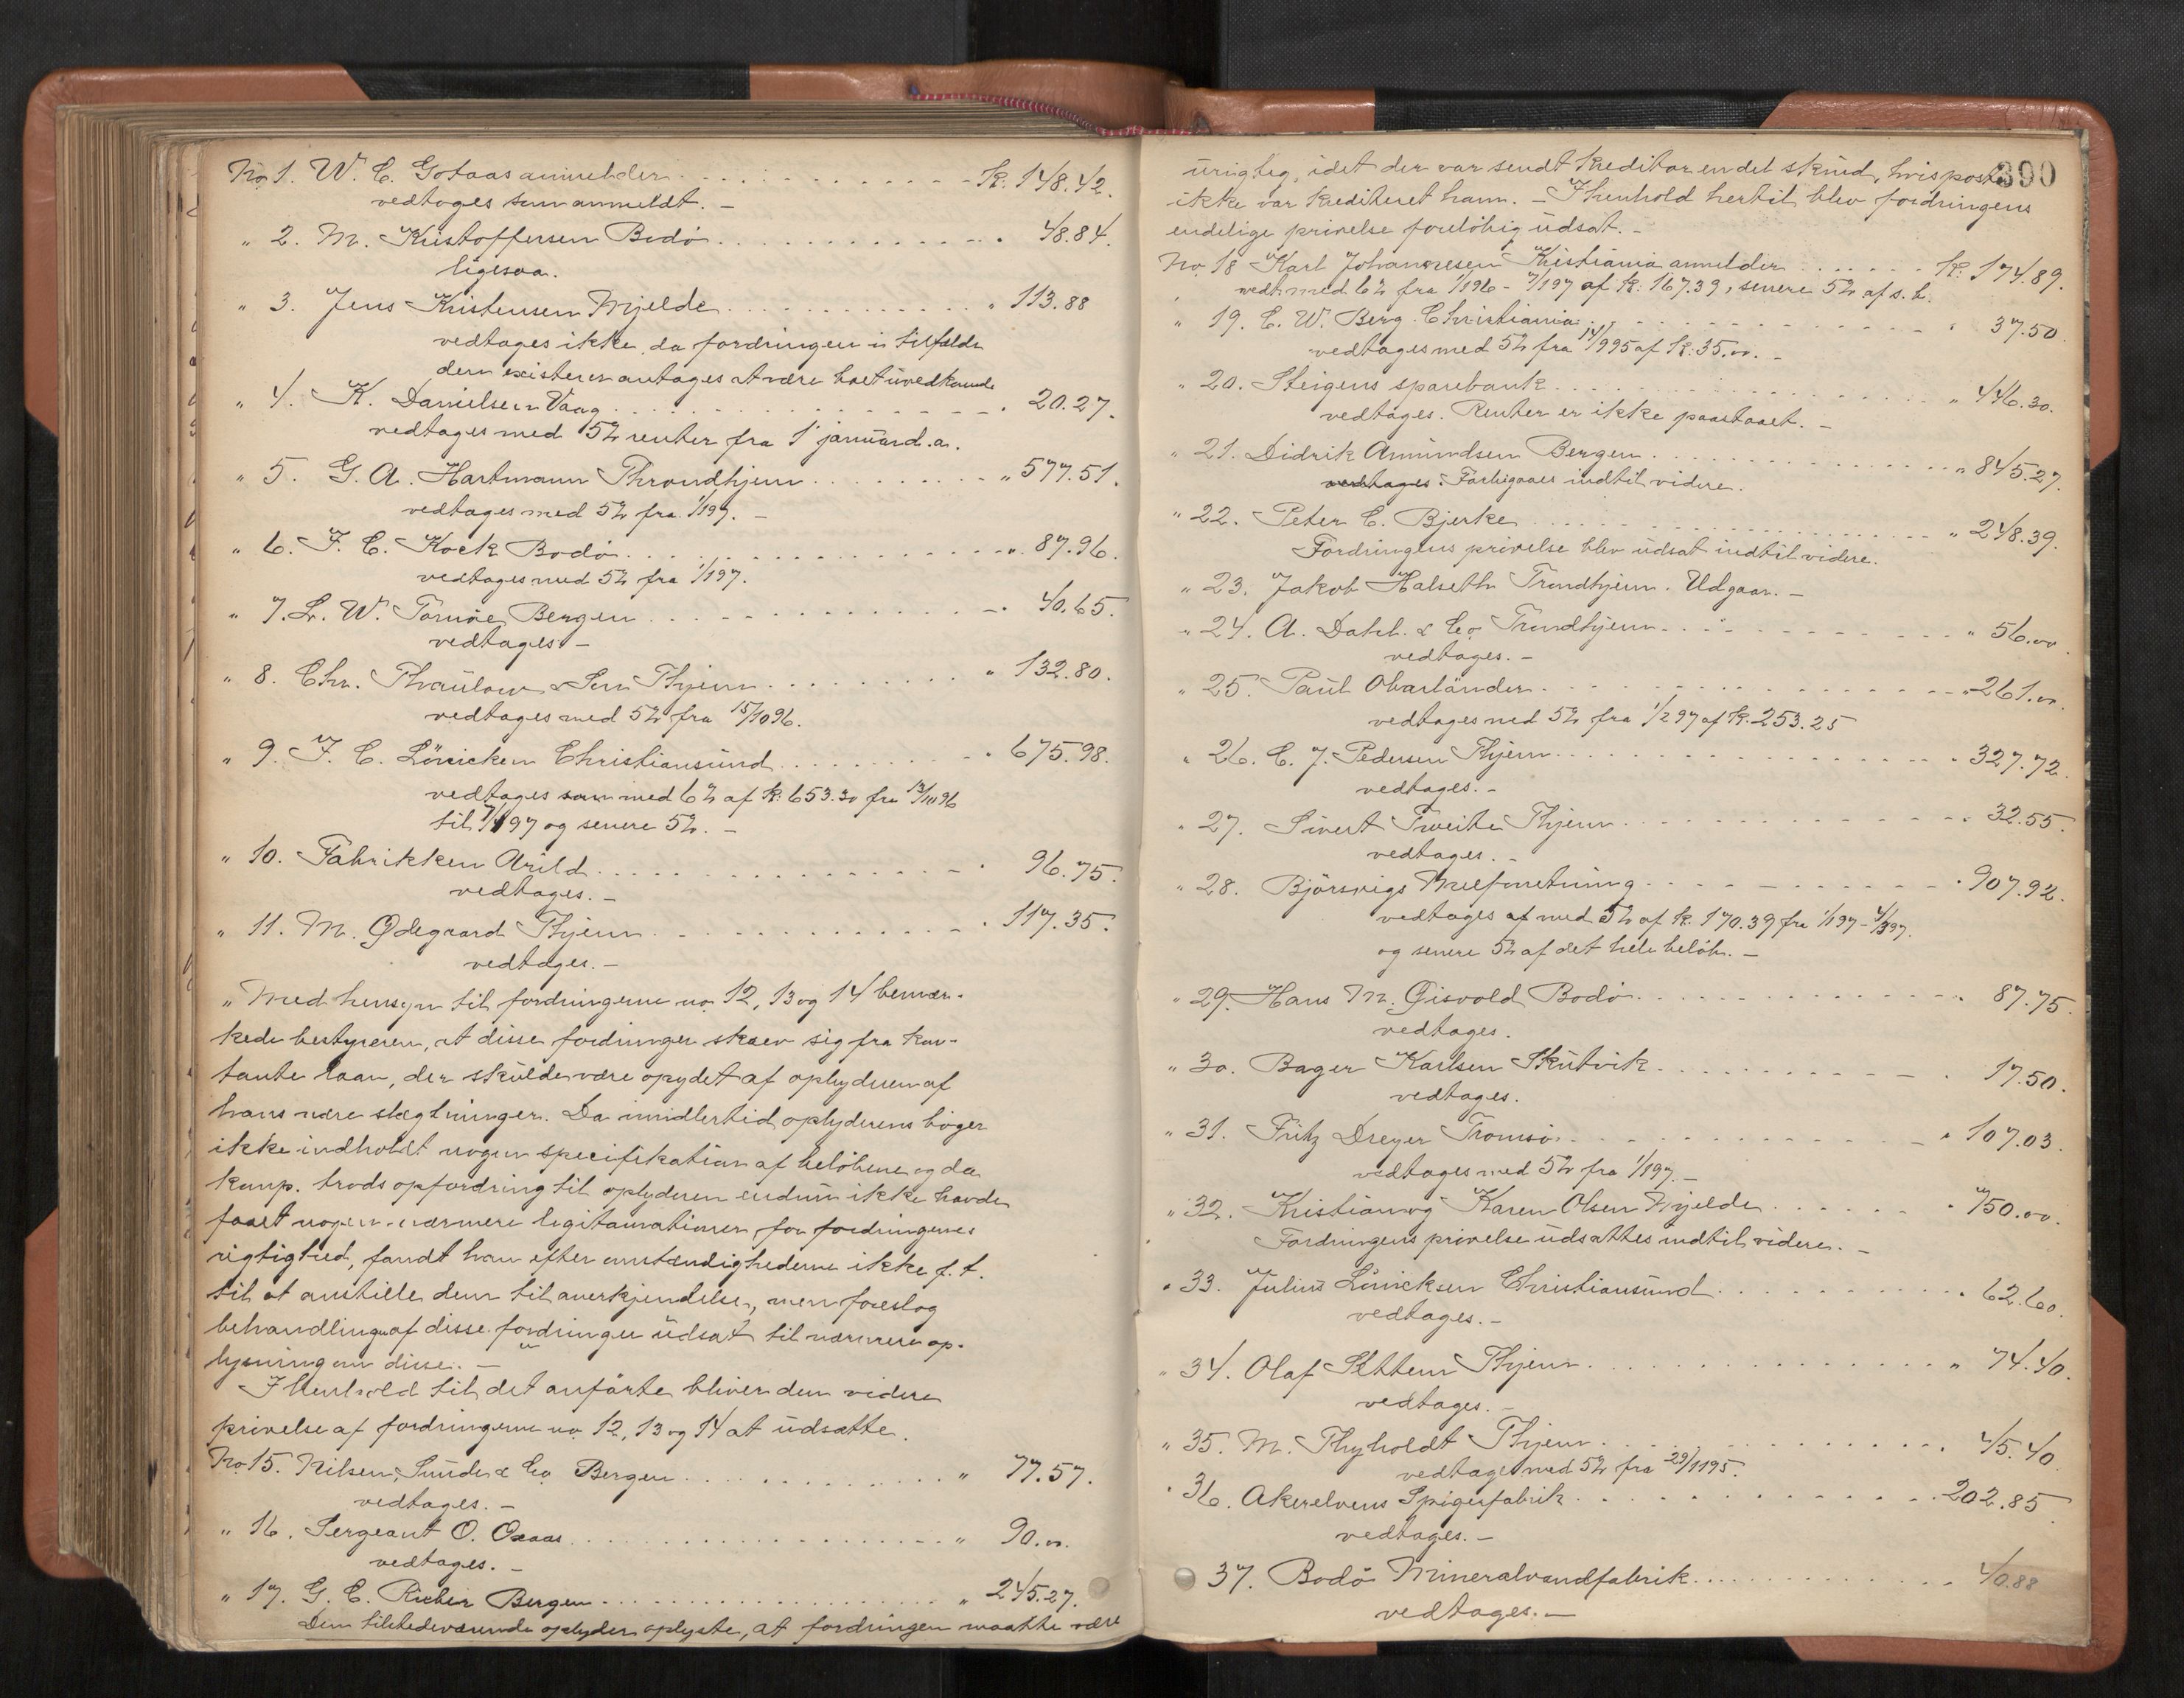 No 1. W. C. Gotaas anmelder . . . . . . . . . K. 148.42.
vedtages som anmeldt. –
" 2. M. Kristoffersen Bodö . . . . . . . . . " 48.84.
ligesaa.
" 3. Jens Kristensen Mjelde . . . . . . . . . " 113.88
vedtages ikke, da fordringen i tilfælde
den existerer antages at være boet uvedkomde
" 4. K. Danielsen Vaag . . . . . . . . . " 20.27.
vedtages med 5% renter fra 1' januar d. a.
" 5. G. A. Hartmann Throndhjem . . . . . . . . . " 577.51.
vedtages med 5% fra 1/1 97. –
" 6. F. C. Kock Bodö . . . . . . . . . " 87.96.
vedtages med 5% fra 1/1 97.
" 7. L. W. Tornöe Bergen . . . . . . . . . " 40.65.
vedtages –
" 8. Chr. Thaulow & Søn Thjem . . . . . . . . . " 132.80.
vedtages med 5% fra 15/10 96.
" 9. F. C. Lönicken Christiansund . . . . . . . . . " 675.98.
vedtages som med 6% af K. 653.30 fra 13/10 96
til 7/1 97 og senere 5%. –
" 10. Fabrikken Arild . . . . . . . . . " 96.75.
vedtages. –
" 11. M. Ødegaard Thjem . . . . . . . . . " 117.35.
vedtages. –
" Med hensyn til fordringerne no 12, 13 og 14 bemær-
kede bestyreren, at disse fordringer skrev sig fra kon-
tante laan, der skulde være opydet af opbyderen af
hans nære slægtninger. Da imidlertid opbyderens böger
ikke indholdt nogen specifikation af belöbene og da
komp. trods opfordring til opbyderen endnu ikke havde
faaet nogen nærmere legitimationer for fordringernes
rigtighed, fandt han efter omstændighederne ikke f. t.
til at anstille dem til anerkjendelse, men foreslog
behandlingen af disse fordringer udsat til nærmere op-
lysning om disse. –
I henhold til det anförte bliver den videre
prövelse af fordringerne no 12, 13 og 14 at udsætte.
No 15. Nilsen, Sunde & Co Bergen . . . . . . . . . " 77.57.
vedtages. –
" 16. Sergeant O. Oxaas . . . . . . . . . " 90.00.
vedtages. –
" 17. G. C. Rieber Bergen . . . . . . . . . " 245.27.
Den tilstedeværende opbyder oplyste, at fordringen maatte være
390
urigtig, idet der var sendt kreditor en del skind, hvis poster
ikke var krediteret ham. – I henhold hertil blev fordringens
endelige prövelse forelöbig udsat. –
No 18 Karl Johannesen Kristiania anmelder . . . . . . K. 174.89.
vedt. med 6% fra 1/1 96 - 7/1 97 af K. 167.39, senere 5% af s. b.
" 19. C. W. Berg Christiania . . . . . . . . . " 37.50.
vedtages med 5% fra 14/9 95 af K. 35.00. –
" 20. Steigens sparebank . . . . . . . . . " 446.30.
vedtages. Renter er ikke paastaaet. –
" 21. Didrik Amundsen Bergen . . . . . . . . . " 845.27.
vedtages. Forbigaaes indtil videre.
" 22. Peter C. Bjerke . . . . . . . . . " 248.39.
Fordringens prövelse blev udsat indtil videre.
" 23. Jakob Halseth Trondhjem. Udgaar. –
" 24. A. Dahl & Co Trondhjem . . . . . . . . . " 56.00.
vedtages. –
" 25. Paul Oberländer . . . . . . . . . " 261.00.
vedtages med 5% fra 1/2 97 af K. 253.25
" 26. C. J. Pedersen Thjem . . . . . . . . . " 327.72.
vedtages. –
" 27. Sivert Tveite Thjem . . . . . . . . . " 32.55.
vedtages. –
" 28. Björsvigs Mølleforretning . . . . . . . . . " 907.92.
vedtages af med 5% af K. 170.39 fra 1/1 97 - 4/3 97.
og senere 5% af det hele belöb. –
" 29. Hans M. Gisvold Bodö . . . . . . . . . " 87.75
vedtages.
" 30. Bager Karlsen Skutvik . . . . . . . . . " 17.50.
vedtages.
" 31. Fritz Dreyer Tromsö . . . . . . . . . " 107.03.
vedtages med 5% fra 1/1 97. –
" 32. Kristian og Karen Olsen Mjelde . . . . . . " 750.00.
Fordringens prövelse udsattes indtil videre. –
" 33. Julius Lönicken Christiansund . . . . . . . . . " 62.60.
vedtages. –
" 34. Olaf Settem Thjem . . . . . . . . . " 74.40.
vedtages. –
" 35. M. Thyholdt Thjem . . . . . . . . . " 45.40.
vedtages med 5% fra 29/11 95.
" 36. Akerelvens Spigerfabrik . . . . . . . . . 202.85
vedtages. –
" 37. Bodö Mineralvandfabrik . . . . . . . . . 40.88
vedtages. –